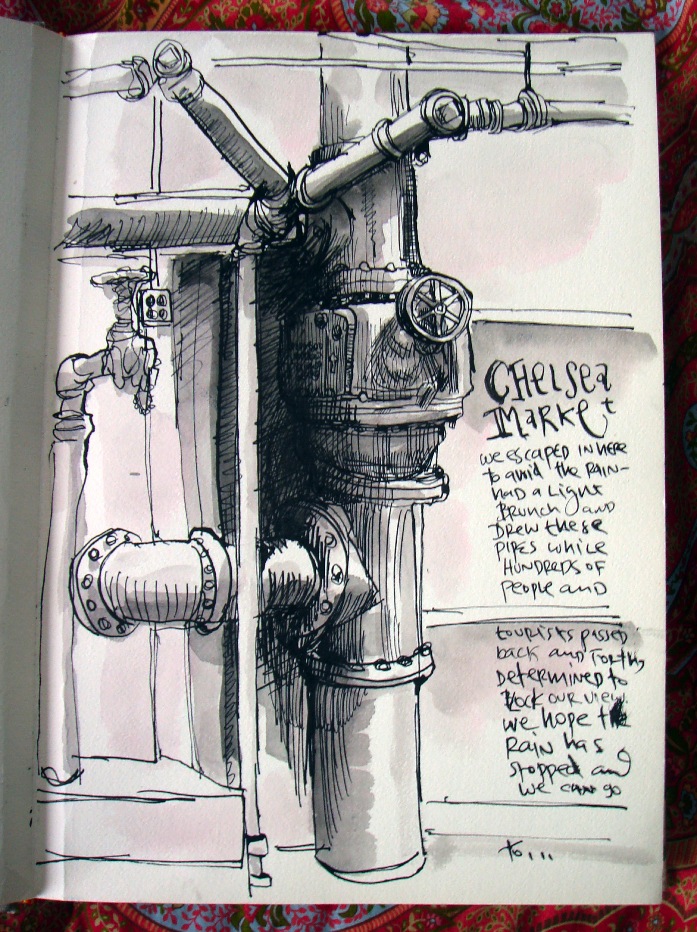 CHelsea
MARKet
we escaped in here
to avoid the RAIN-
had a Light
Brunch and
Drew these
PIPES while
HUNDREDS OF
People and
tourists passed
back and forth,
determined to
block our view.
we hope the
RAIN has
stopped and
we can go
to....